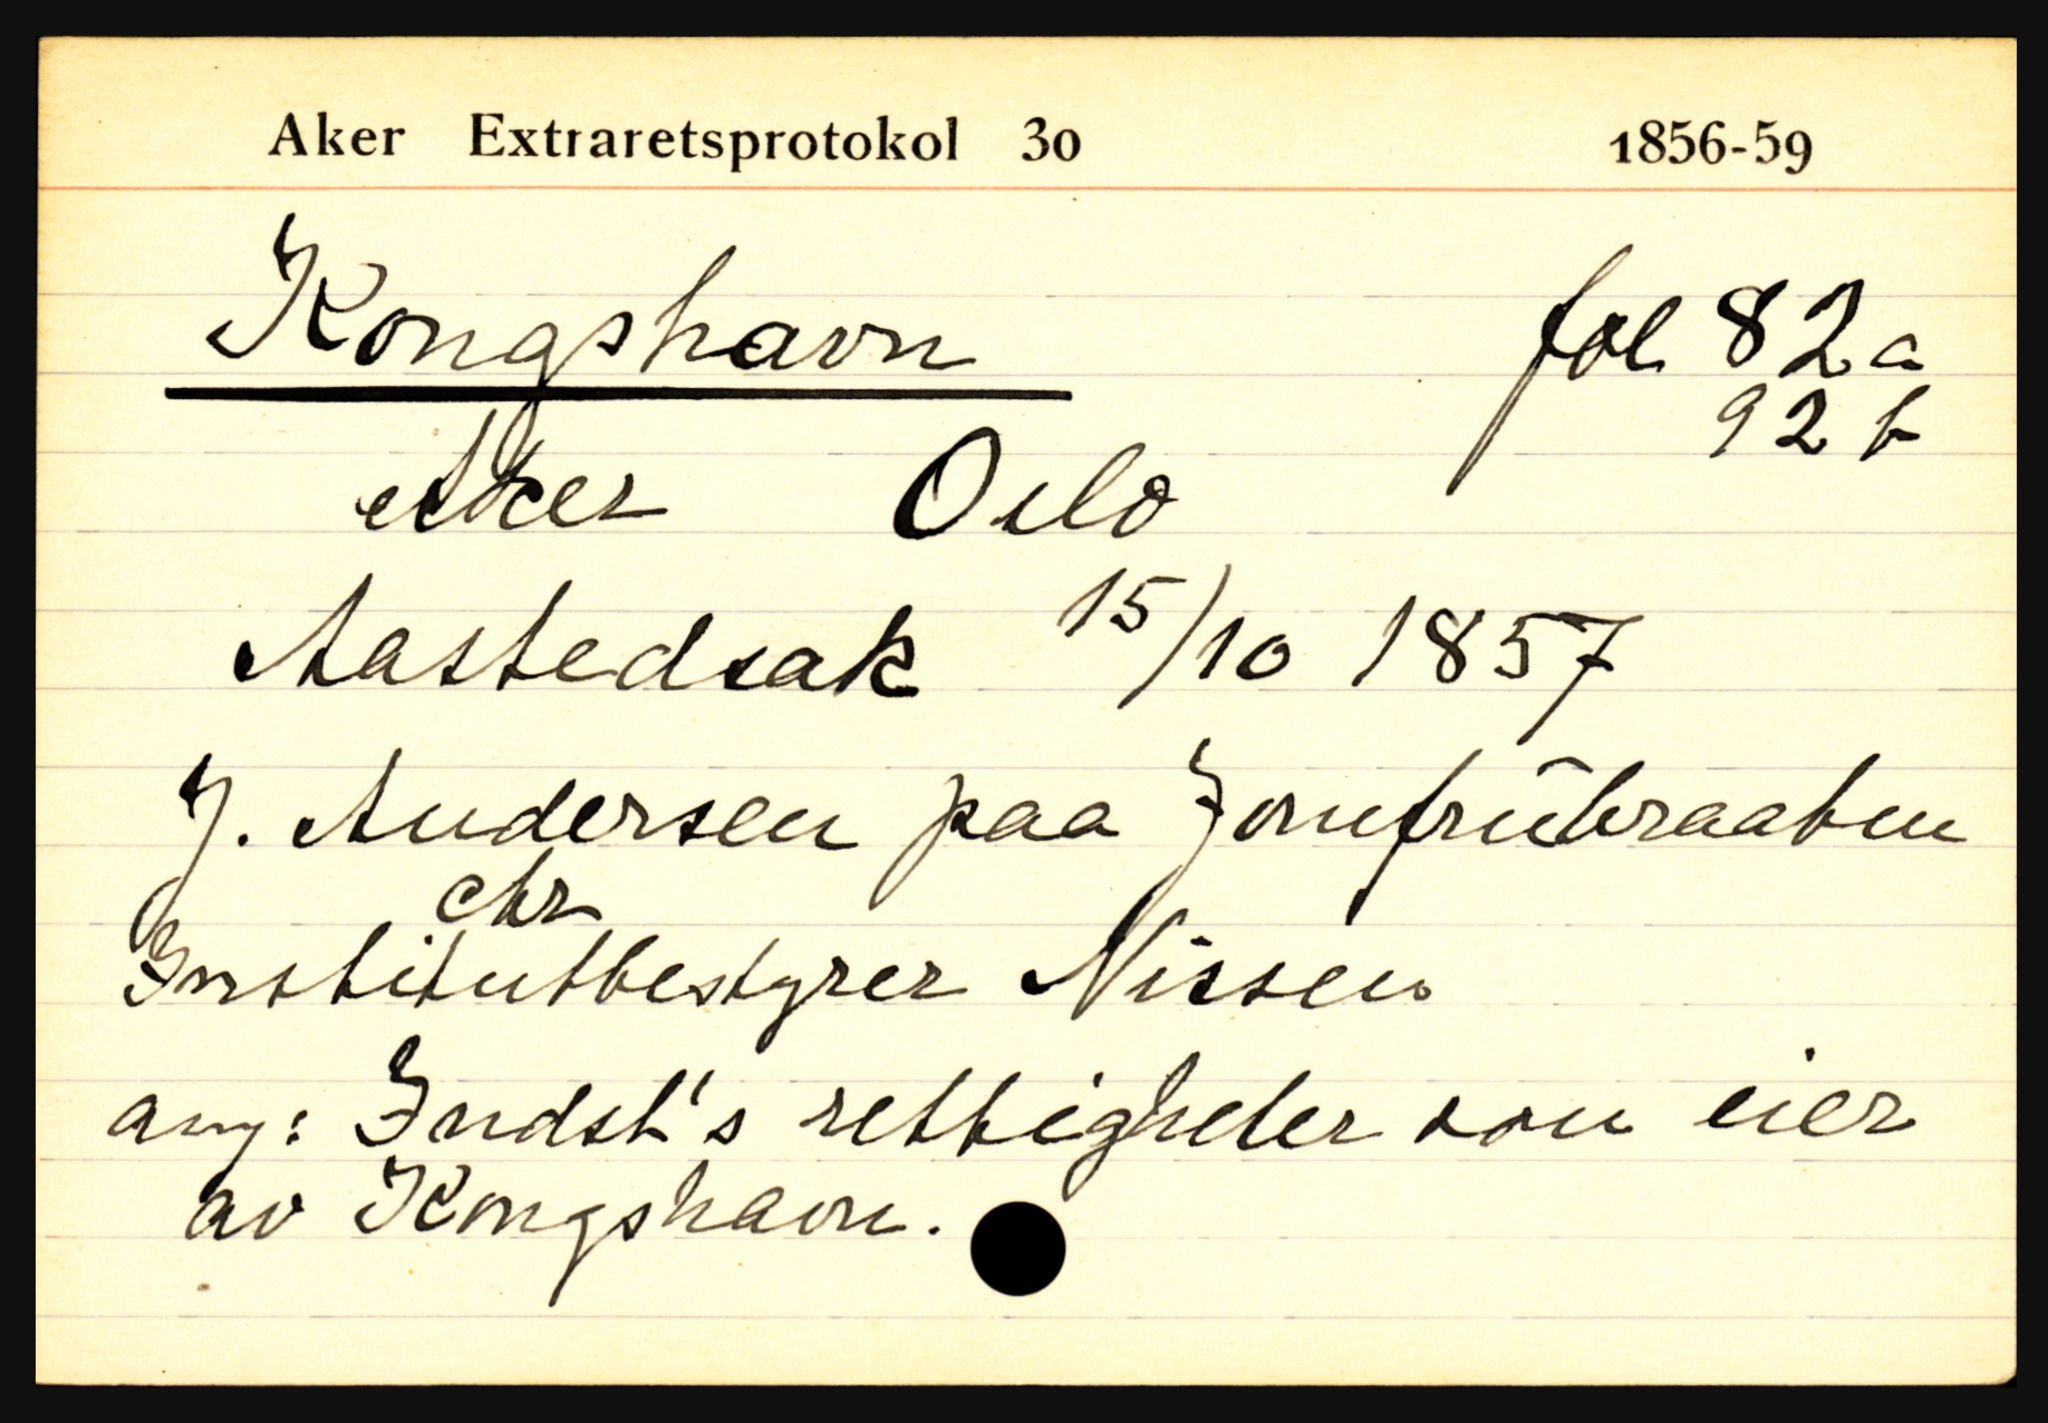 Aker Extraretsprotokol 30 1856-59
Kongshavn fol 82a
92b
Aker Oslo
Aastedsak 15/10 1857
J. Andersen paa Jomfrubraaten
ctr
Institutbestyrer Nissen
ang: Indst's rettigheter som eier
av Kongshavn.